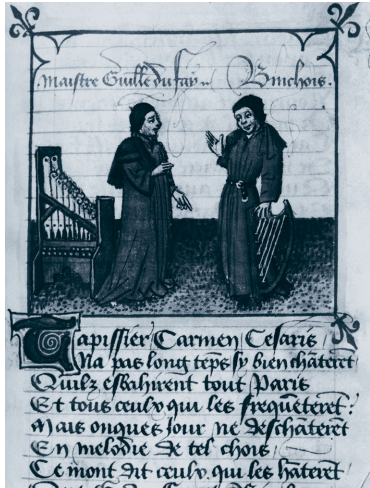 Maistre Guille du fay Binchois.
Tapissier Carmen Cesaris
Na pas long tēps sy bien chāteret
Quilz esbahirent tout Paris
Et tous ceulx qui les frequēteret:
Mais onques jour ne deschāteret
En melodie de tel chois
Ce mont dit ceulx qui les hāteret